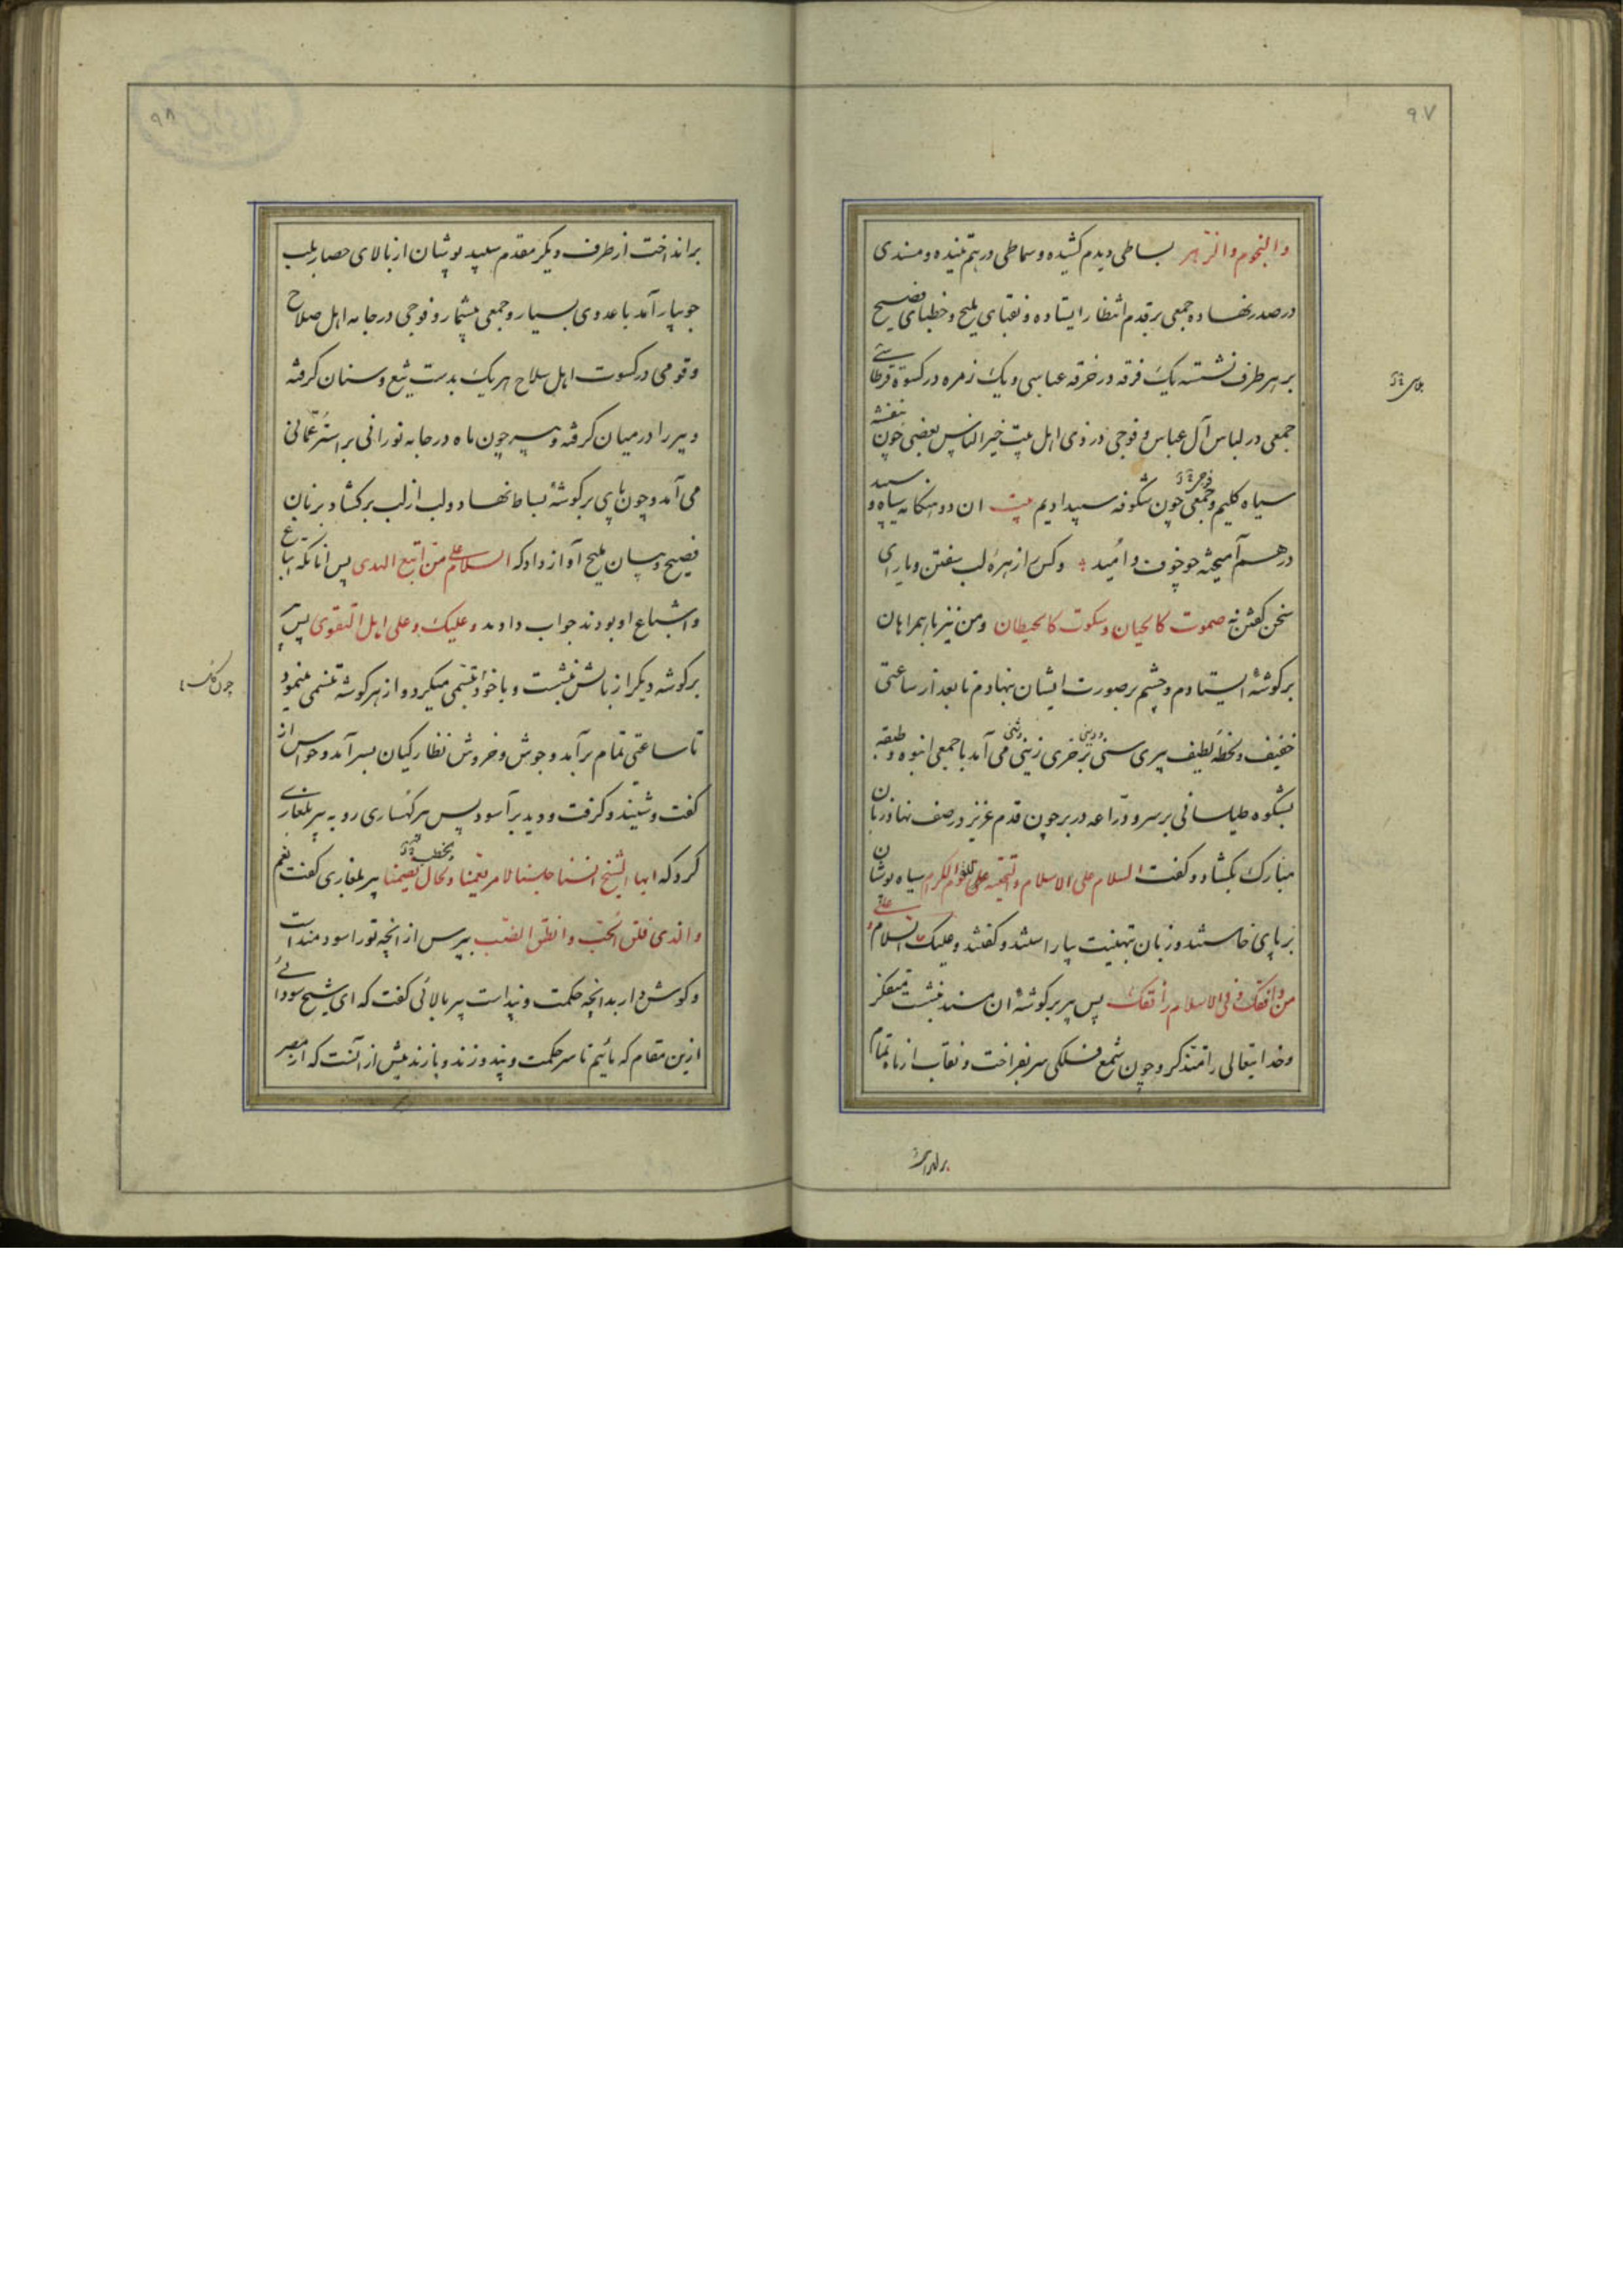 ۹۷
والنجوم والزهر بساطی دیدم کشیده و سماطی درهم تنیده و مسندی
در صدر نهاده جمعی بر قدم انتظار ایستاده و نقبای ملیح و خطبای فصیح
بر هر طرف نشسته یک فرقه در خرقه عباسی و یک زمره در کسوة قرطاسی
جمعی در لباس آل عباس و فوجی در زی اهل بیت خیر الناس بعضی چون بنفشه
سیاه کلیم و جمعی چون شکوفه سپید ادیم بیت ان دو هنکامه سیاه و سپید
درهم آمیخته چو خوف و امید وکس را زهرهٔ لب سفتن و یارای
سخن کفتن نه صموت کالحیان و سکوت کالحیطان ومن نیز با همراهان
بر کوشهٔ ایستادم و چشم بر صورت ایشان نهادم تا بعد از ساعتی
خفیف و لحظهٔ لطیف پیری سنی بر خری زینی می آمد با جمعی انبوه و طبقه
بشکوه طیلسانی بر سر و درّاعه در بر چون قدم عزیز در صف نهاد زبان
مبارک بکشاد و کفت السلام علی الاسلام والتحیة علی القوم الکرام سیاه پوشان
بر پای خاستند و زبان تهنیت بیاراستند و کفتند و علیک السلام و علی
من وافقک وفی الاسلام رافقک پس پیر بر کوشهٔ ان مسند بنشست متفکر
و خدایتعالی را متذکر و چون شمع فلکی سر بفراخت و نقاب از ماه تمام
برانداخت
۹۸
برانداخت از طرف دیکر مقدم سپید پوشان از بالای حصار بلب
جویبار آمد با عددی بسیار و جمعی بیشمار و فوجی در جامه اهل صلاح
و قومی در کسوت اهل سلاح هر یک بدست تیغ و سنان کرفته
و پیر را در میان کرفته و پیر چون ماه در جامه نورانی بر استر عمّانی
می آمد و چون پای بر کوشهٔ بساط نهاد و لب از لب برکشاد بزبان
فصیح و بیان ملیح آواز داد که السلام علی من اتبع الهدی پس آنانکه اتباع
و اشیاع او بودند جواب دادند و علیک و علی اهل التقوی پس پیر
بر کوشه دیکر از بالش بنشست و با خود تبسمی میکرد و از هر کوشه تنسمی مینمود
تا ساعتی تمام برآمد و جوش و خروش نظارکیان بسر آمد و حواس از
کفت و شنید و کرفت و دید برآسود پس پیر کهساری رو به پیر بلغاری
کرد که ایها الشیخ انسنا جلسنا لامر یعمنا و لحال یضمنا پیر بلغاری کفت نعم
والذی فلق الحبّ وانطق الضبّ بپرس از انچه تو را سودمند است
و کوش دار بدانچه حکمت و پند است پیر بالائی کفت که ای شیخ سودائی
ازین مقام که مائیم تا سر حکمت و پند و زند و پازند بیش از آنست که از مصر